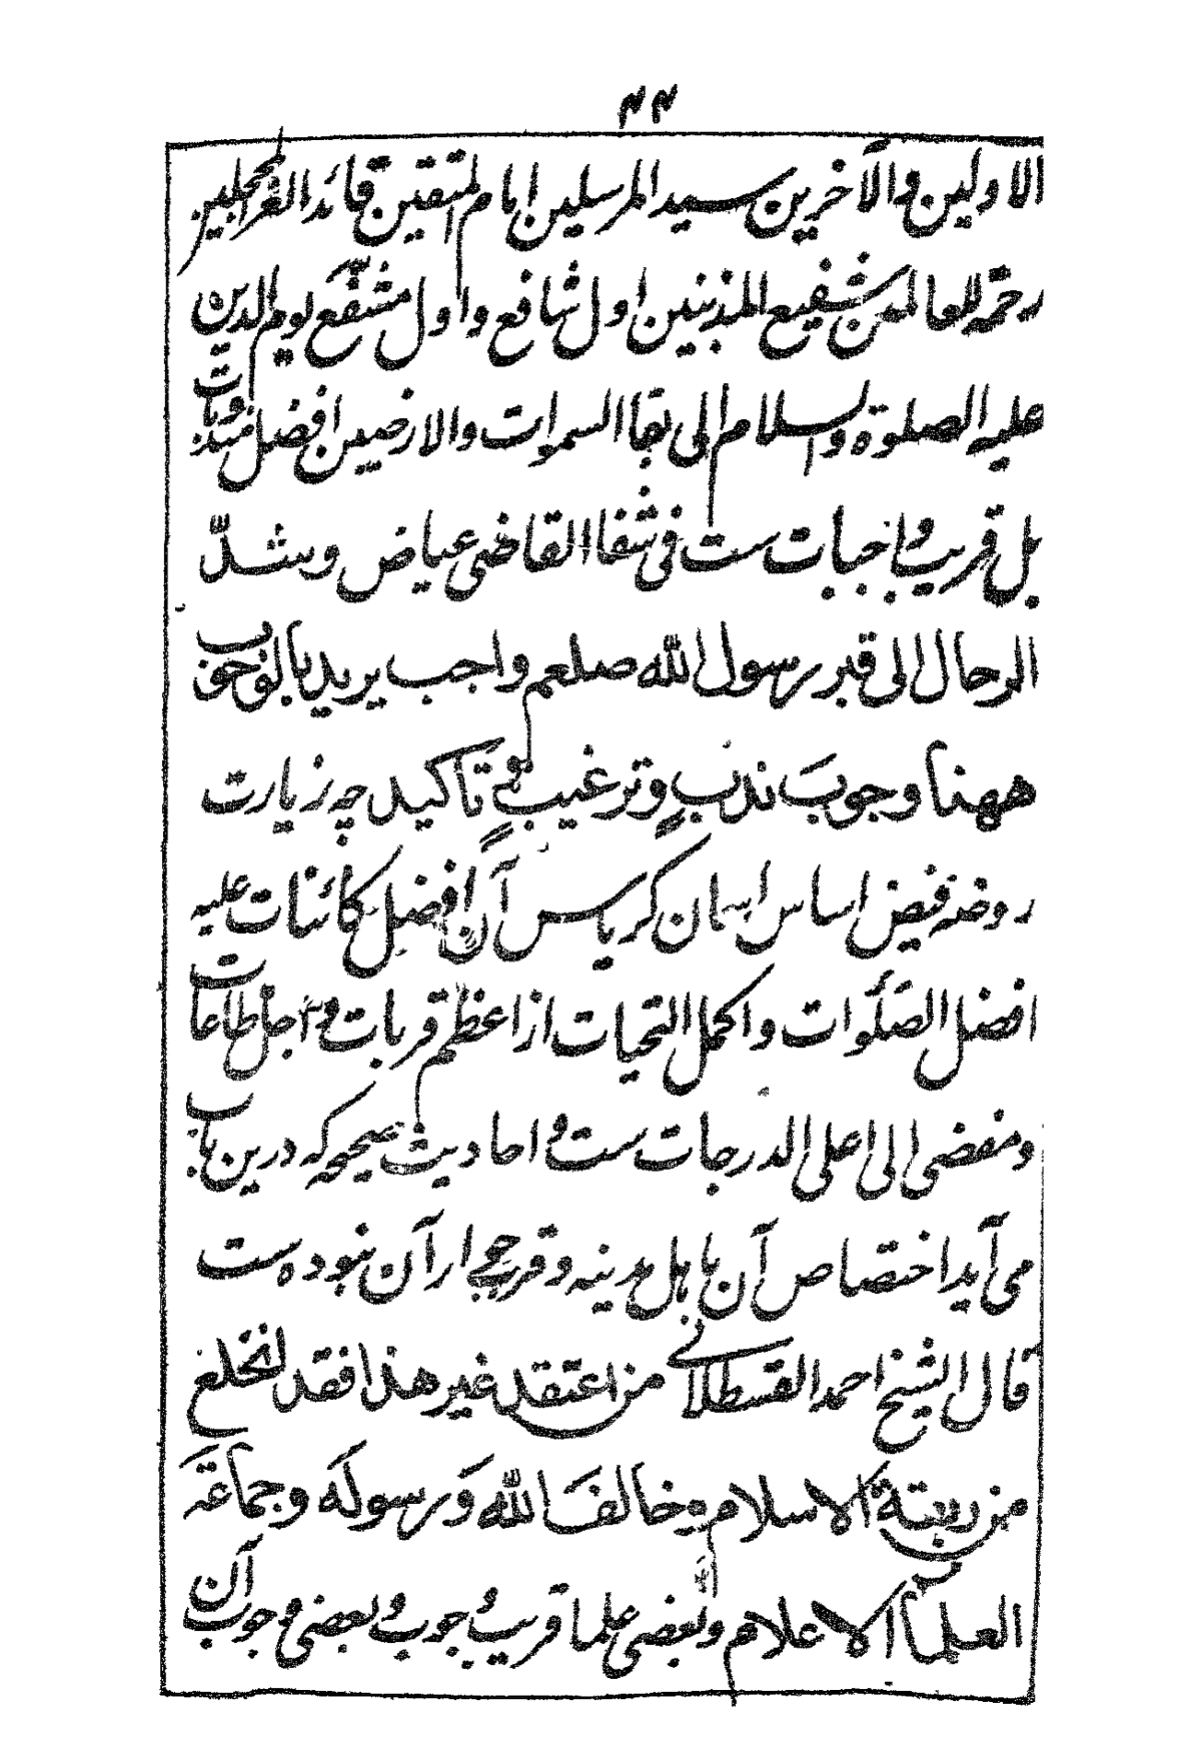 ۴۴
الاولین والآخرین سید المرسلین امام المتقین قائد الغر المحجلین
رحمة للعالمین شفیع المذنبین اول شافع واول مشفّع یوم الدین
علیه الصلوة والسلام الی بقا السموات والارضین افضل مندوبات
بل قریب واجبات ست فی شفا القاضی عیاض وشدّ
الرحال الی قبر رسول الله صلعم واجب یرید بالوجوب
ههنا وجوبَ ندبٍ وترغیبٍ وتاکید چه زیارت
روضه فیض اساس آسمان کریاس آن افضل کائنات علیه
افضل الصلوات واکمل التحیات از اعظم قربات و اجل طاعات
ومفضی الی اعلی الدرجات ست و احادیث صحیحه که درین باب
می آید اختصاص آن باهل مدینه وقرب جوار آن نبوده ست
قال الشیخ احمد القسطلانی من اعتقد غیر هذا فقد انخلع
من ربقة الاسلام وخالفَ اللهَ وَرسولَه وجماعَة
العلماءِ الاعلام وبعضی علما قریب وجوب و بعضی وجوب آن